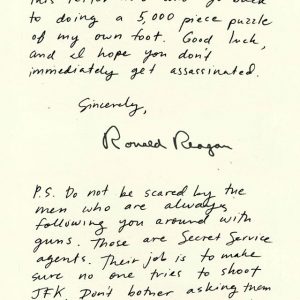 to doing a 5,000 piece puzzle
of my own foot. Good luck,
and I hope you don't
immediately get assassinated.
Sincerely,
Ronald Reagan
P.S. Do not be scared by the
men who are always
following you around with
guns. Those are Secret Service
agents. Their job is to make
sure no one tries to shoot
JFK. Don't bother asking them